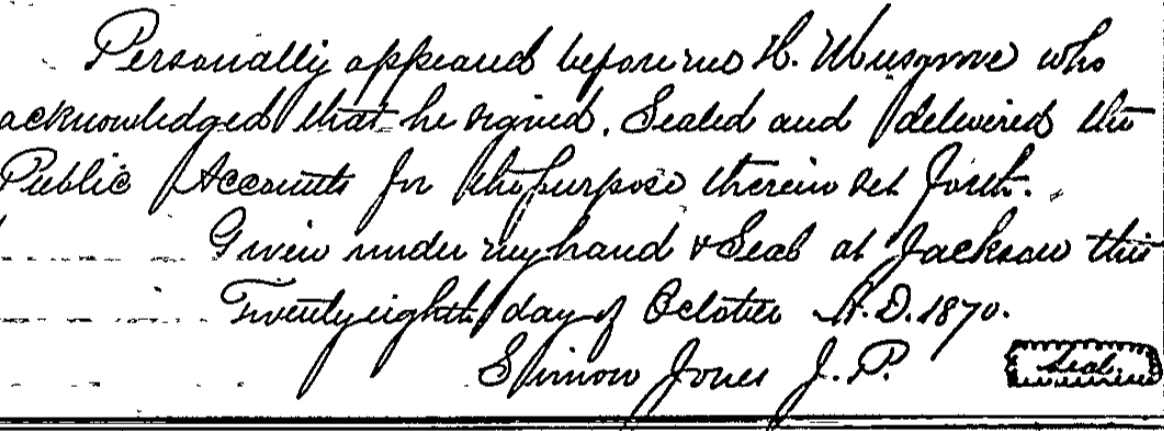 Personally appeared before me H. Musgrove who
acknowledged that he signed, Sealed and delivered the
Public Accounts for the purpose therein set forth.
Given under my hand & Seal at Jackson this
Twenty eighth day of October A.D. 1870.
Simon Jones J.P. Seal.